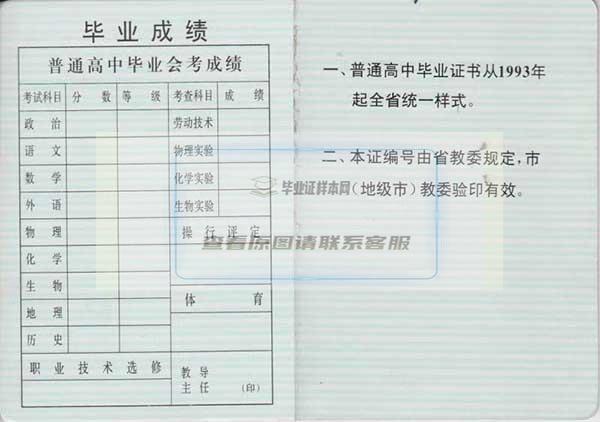 毕业成绩
普通高中毕业会考成绩
考试科目 分数 等级 考查科目 成绩
政治 劳动技术
语文 物理实验
数学 化学实验
外语 生物实验
物理 操行评定
化学
生物
地理 体育
历史
职业技术选修
教导
主任 (印)
一、普通高中毕业证书从1993年
起全省统一样式。
二、本证编号由省教委规定,市
(地级市)教委验印有效。
毕业证样本网
查看原图请联系客服